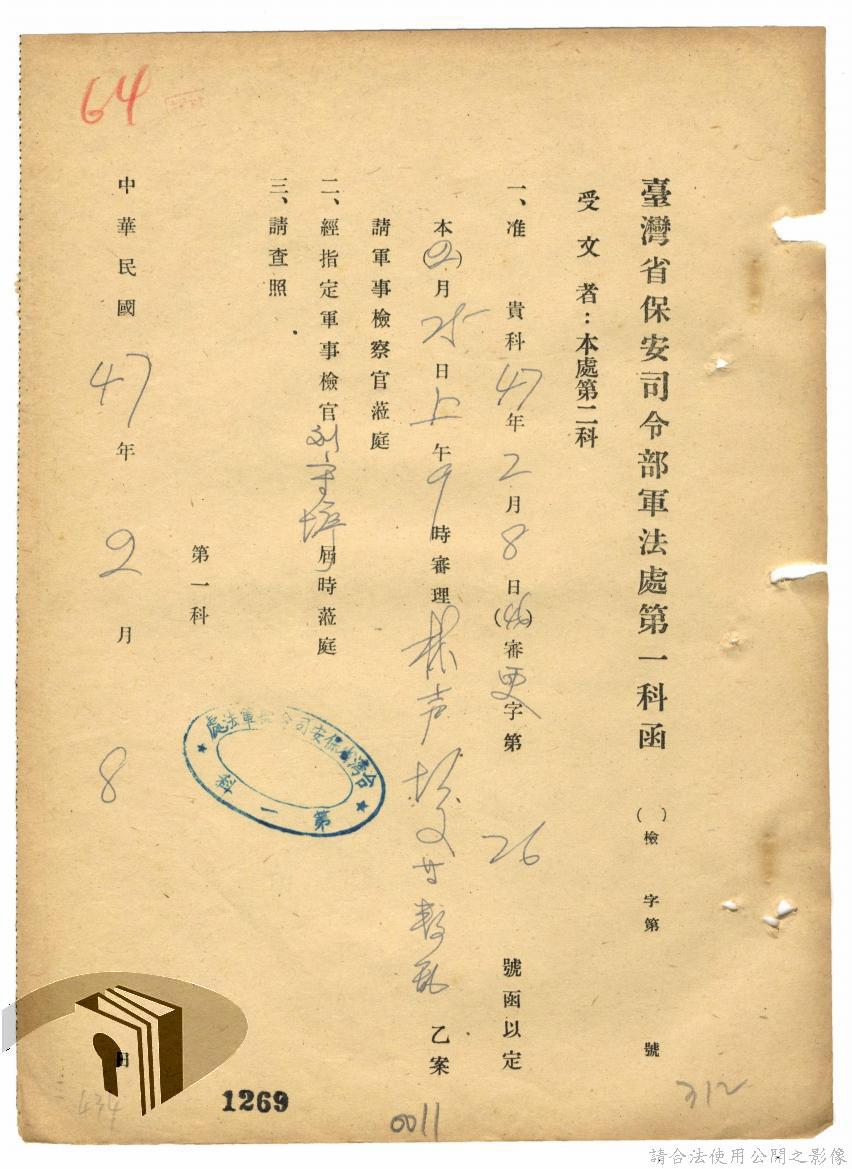 64
臺灣省保安司令部軍法處第一科函 ( )檢 字第 號
受文者：本處第二科
一、准 貴科47年2月8日(46)審更字第 26 號函以定
本(2)月25日上午9時審理林声 乙案
請軍事檢察官蒞庭
二、經指定軍事檢官 屆時蒞庭
三、請查照
第一科
台灣省保安司令部軍法處
第一科
中華民國47年2月8日
434
1269
0011
312
請合法使用公開之影像